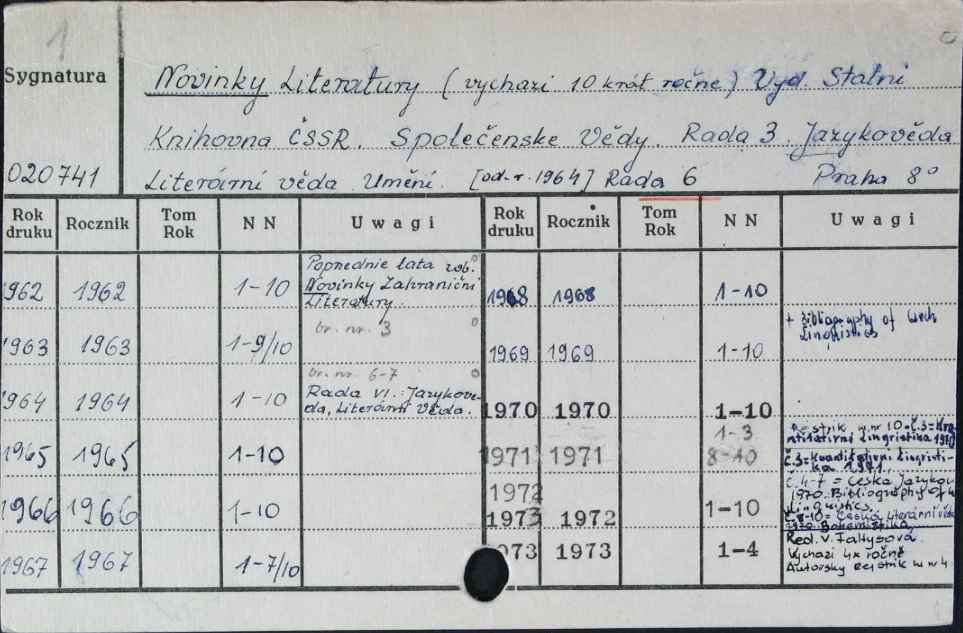 1
Sygnatura
Novinky Literatury (vychazi 10 krát ročne) Vyd. Statni
Knihovna ČSSR. Společenske Vědy. Rada 3. Jazykověda
020741
Literóirní věda. Umění. [od r. 1964] Rada 6 Praha 8°
Rok druku Rocznik Tom Rok N N Uwagi Rok druku Rocznik Tom Rok N N Uwagi
1962 1962 1-10 Poprzednie lata zob.
Novinky Zahraniční
Literatury.
1968 1968 1-10
1963 1963 1-9/10 br. nr. 3
1969 1969 1-10 + Bibliography of Czech
Linguistics
1964 1964 1-10 br. nr. 6-7
Rada VI. Jazykove-
da, Literórní Věda.
1970 1970 1-10
1965 1965 1-10
1971 1971 1-3
8-10
w nr 10
Lingvistika
č.3=Kvantitativni Lingvisti-
ka 1971.
1966 1966 1-10
1972
1973 1972 1-10
č.4-7 = Česka Jazykov
1970. Bibliography of
Linguistics.
č.8-10= Česká literární věda
1970. Bohemistika
1967 1967 1-7/10
973 1973 1-4
Red. V. Faltysová
Vychazi 4x ročně
Autorsky rejstrik w nr 4